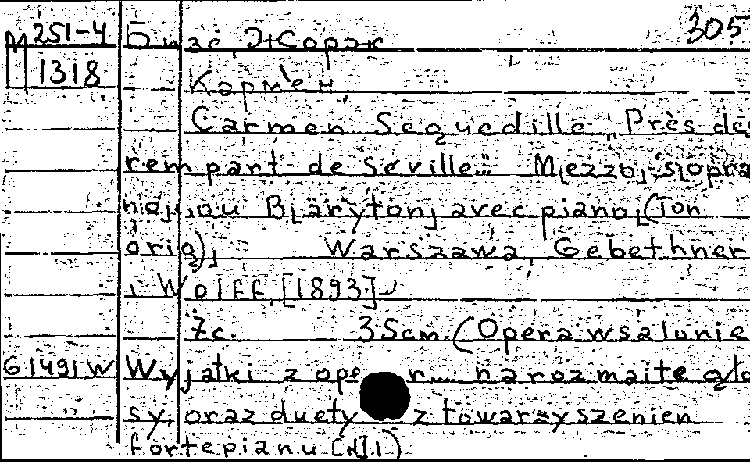 M 251-4 Бизе, Жорж 305
1318
Кармен.
Carmen Seguedille „Près des
rempart de Séville". M[ezzo]-s[opra
no] ou B[aryton] avec piano, (Ton
orig), Warszawa, Gebethner
i Wolff, [1893]
7c. 35cm. (Opera w salonie
G 1491 W Wyjatki z oper ... na rozmaite gło
sy, oraz duety z towarzyszenien
fortepianu [N].1)